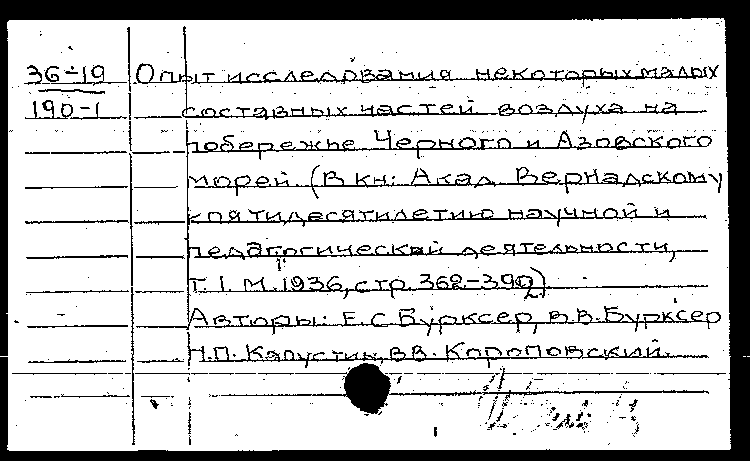 36-19 Опыт исследования некоторых малых
190-1 составных частей воздуха на
побережье Черного и Азовского
морей. (В кн: Акад. Вернадскому
к пятидесятилетию научной и
педагогической деятельности,
Т. I. М. 1936, стр. 362-390)
Авторы: Е.С. Бурксер, В.В. Бурксер
Н.П. Капустин, В.В. Короповский.